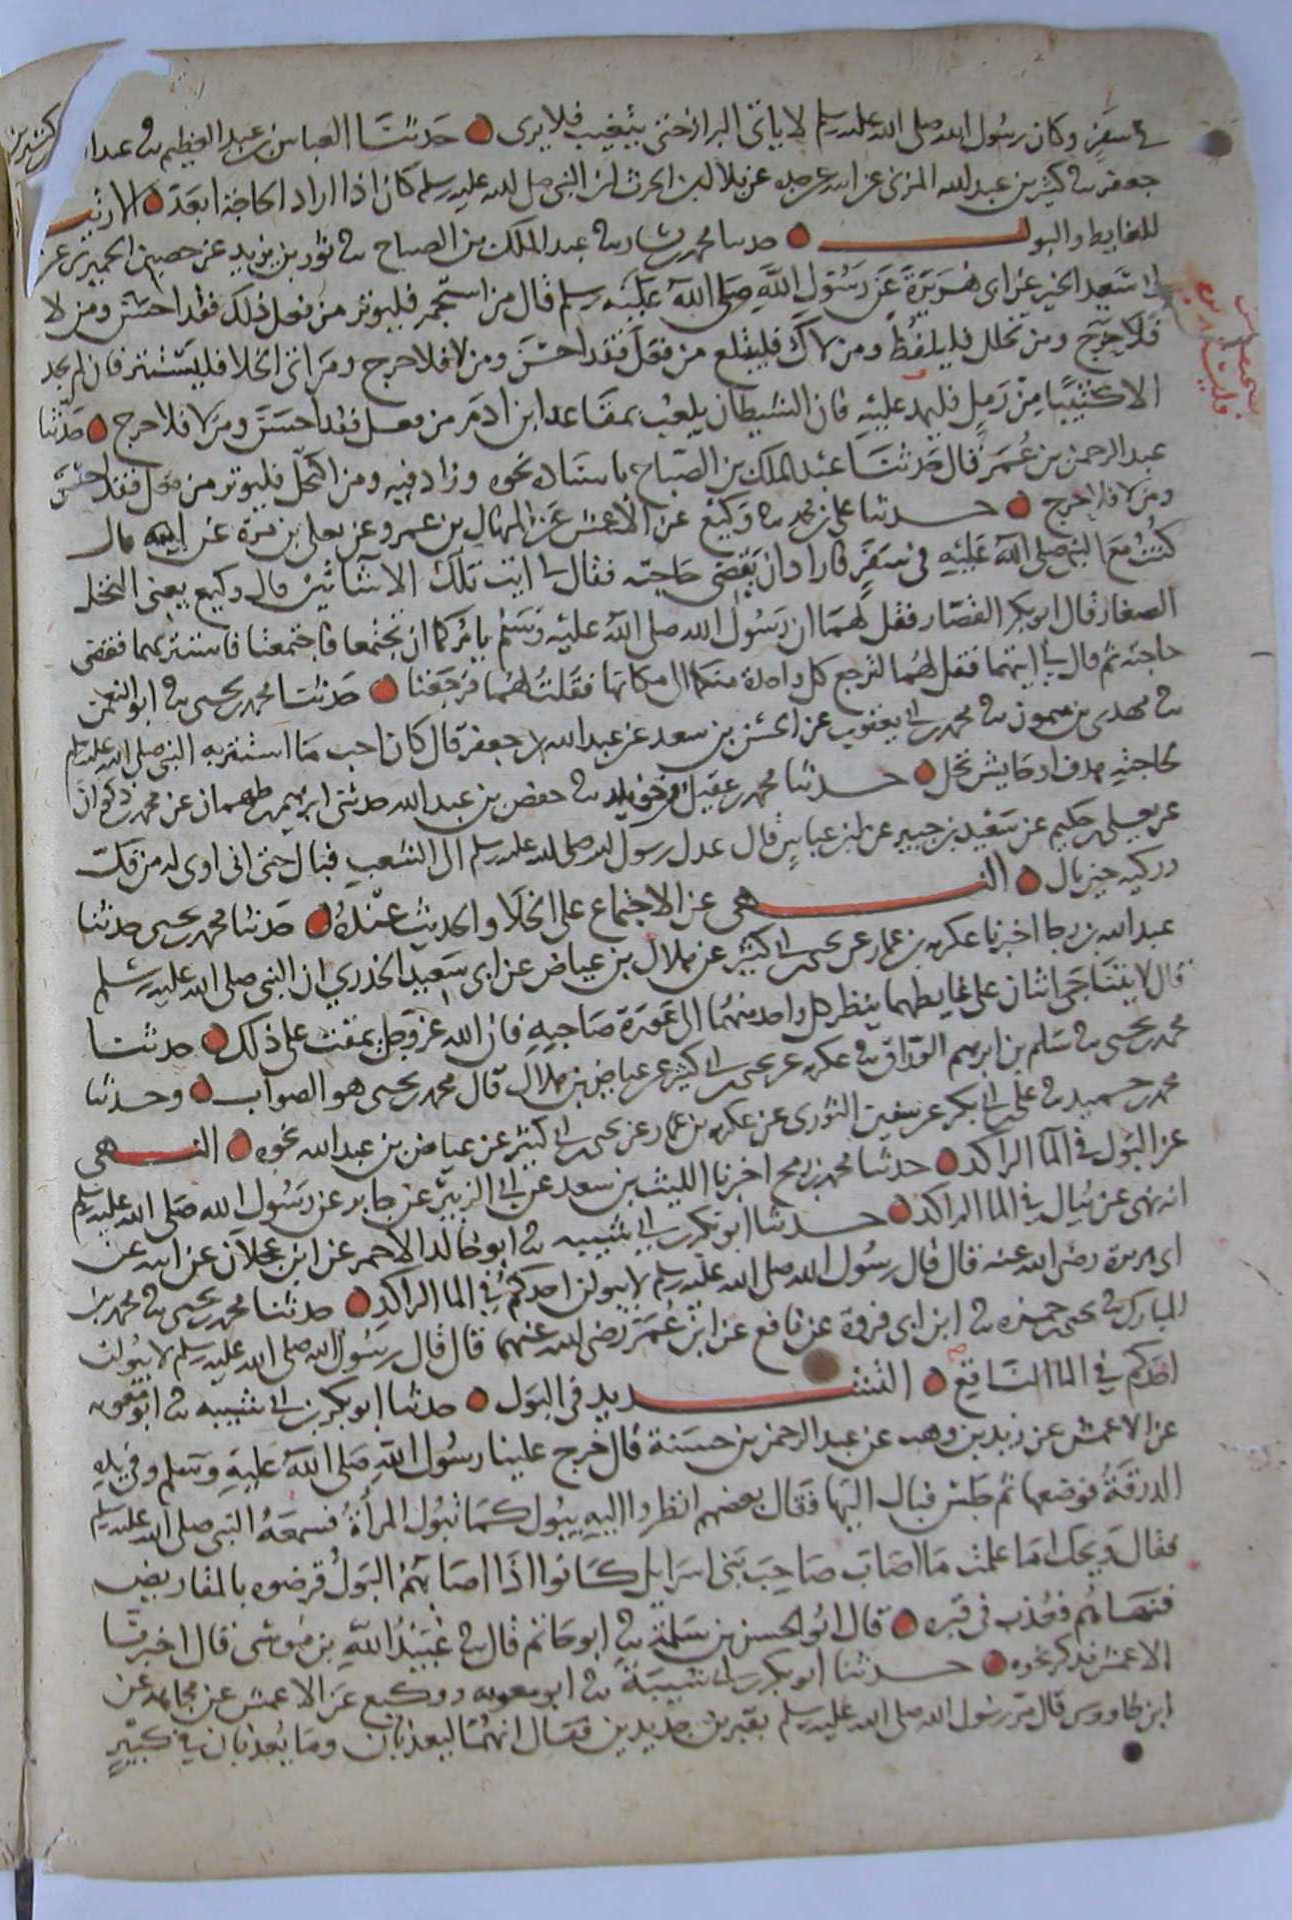 في سفر وكان رسول الله صلى الله عليه وسلم لا ياتي البراز حتى يتغيب فلا يرى حدثنا العباس بن عبد العظيم ثنا عبد الله
جعفر ثنا كثير بن عبد الله المزني عن ابيه عن جده عن بلال بن الحرث ان النبي صلى الله عليه وسلم كان اذا اراد الحاجة ابعد الارتياد
للغايط والبول حدثنا محمد بن بشار ثنا عبد الملك بن الصباح ثنا ثور بن يزيد عن حصين الحميري عن
ابي سعيد الخير عن ابي هريرة عن رسول الله صلى الله عليه وسلم قال من استجمر فليوتر من فعل ذلك فقد احسن ومن لا
فلا حرج ومن تخلل فليلفظ ومن لاك فليبتلع من فعل فقد احسن ومن لا فلا حرج ومن اتى الخلا فليستتر فان لم يجد
الا كثيبا من رمل فليمد عليه فان الشيطان يلعب بمقاعد ابن ادم من فعل فقد احسن ومن لا فلا حرج حدثنا
عبد الرحمن بن عمر قال حدثنا عبد الملك بن الصباح باسناده نحوه وزاد فيه ومن اكتحل فليوتر من فعل فقد احسن
ومن لا فلا حرج حدثنا علي بن محمد ثنا وكيع عن الاعمش عن المنهال بن عمرو عن يعلى بن مرة عن ابيه قال
كنت مع النبي صلى الله عليه في سفر فاراد ان يقضي حاجته فقال لي ايت تلك الاشاتين قال وكيع يعني النخل
الصغار قال ابو بكر القصار فقل لهما ان رسول الله صلى الله عليه وسلم يامركما ان تجتمعا فاجتمعتا فاستتر بهما فقضى
حاجته ثم قال لي ايتهما فقل لهما لترجع كل واحدة منكما الى مكانها فقلت لهما فرجعتا حدثنا محمد بن يحيى ثنا ابو النعمن
ثنا مهدي بن ميمون ثنا محمد بن ابي يعقوب عن الحسن بن سعد عن عبد الله بن جعفر قال كان احب ما استتر به النبي صلى الله عليه وسلم
لحاجته هدف او حايش نخل حدثنا محمد بن عقيل بن خويلد ثنا حفص بن عبد الله حدثني ابرهيم بن طهمان عن محمد بن ذكوان
عن يعلى بن حكيم عن سعيد بن جبير عن ابن عباس قال عدل رسول الله صلى الله عليه وسلم الى الشعب فبال حتى اني اوي له من فك
وركيه حين بال النهي عن الاجتماع على الخلا والحديث عنده حدثنا محمد بن يحيى حدثنا
عبد الله بن رجا اخبرنا عكرمة بن عمار عن يحيى بن ابي كثير عن هلال بن عياض عن ابي سعيد الخدري ان النبي صلى الله عليه وسلم
قال لا يتناجى اثنان على غايطهما ينظر كل واحد منهما الى عورة صاحبه فان الله عز وجل يمقت على ذلك حدثنا
محمد بن يحيى ثنا سلم بن ابرهيم الوراق ثنا عكرمة عن يحيى بن ابي كثير عن عياض بن هلال قال محمد بن يحيى هو الصواب وحدثنا
محمد بن حميد ثنا علي بن ابي بكر عن سفين الثوري عن عكرمة بن عمار عن يحيى بن ابي كثير عن عياض بن عبد الله نحوه النهي
عن البول في الما الراكد حدثنا محمد بن رمح اخبرنا الليث بن سعد عن ابي الزبير عن جابر عن رسول الله صلى الله عليه وسلم
انه نهى عن يبال في الما الراكد حدثنا ابو بكر بن ابي شيبه ثنا ابو خالد الاحمر عن ابن عجلان عن ابيه عن
ابي هريرة رضي الله عنه قال قال رسول الله صلى الله عليه وسلم لا يبولن احدكم في الما الراكد حدثنا محمد بن يحيى ثنا محمد بن
المبارك ثنا يحيى بن حمزه ثنا ابن ابي فروة عن نافع عن ابن عمر رضي الله عنهما قال قال رسول الله صلى الله عليه وسلم لا يبولن
احدكم في الما الناقع التشديد في البول حدثنا ابو بكر بن ابي شيبه ثنا ابو معويه
عن الاعمش عن زيد بن وهب عن عبد الرحمن بن حسنة قال خرج علينا رسول الله صلى الله عليه وسلم وفي يده
الدرقة فوضعها ثم جلس فبال اليها فقال بعضهم انظروا اليه يبول كما تبول المراة فسمعه النبي صلى الله عليه وسلم
فقال ويحك اما علمت ما اصاب صاحب بني اسرايل كانوا اذا اصابهم البول قرضوه بالمقاريض
فنهاهم فعذب في قبره قال ابو الحسن بن سلمة ثنا ابو حاتم قال ثنا عبيد الله بن موسى قال اخبرنا
الاعمش فذكر نحوه حدثنا ابو بكر بن ابي شيبة ثنا ابو معويه ووكيع عن الاعمش عن مجاهد عن
ابن طاووس قال مر رسول الله صلى الله عليه وسلم بقبرين جديدين فقال انهما ليعذبان وما يعذبان في كبير